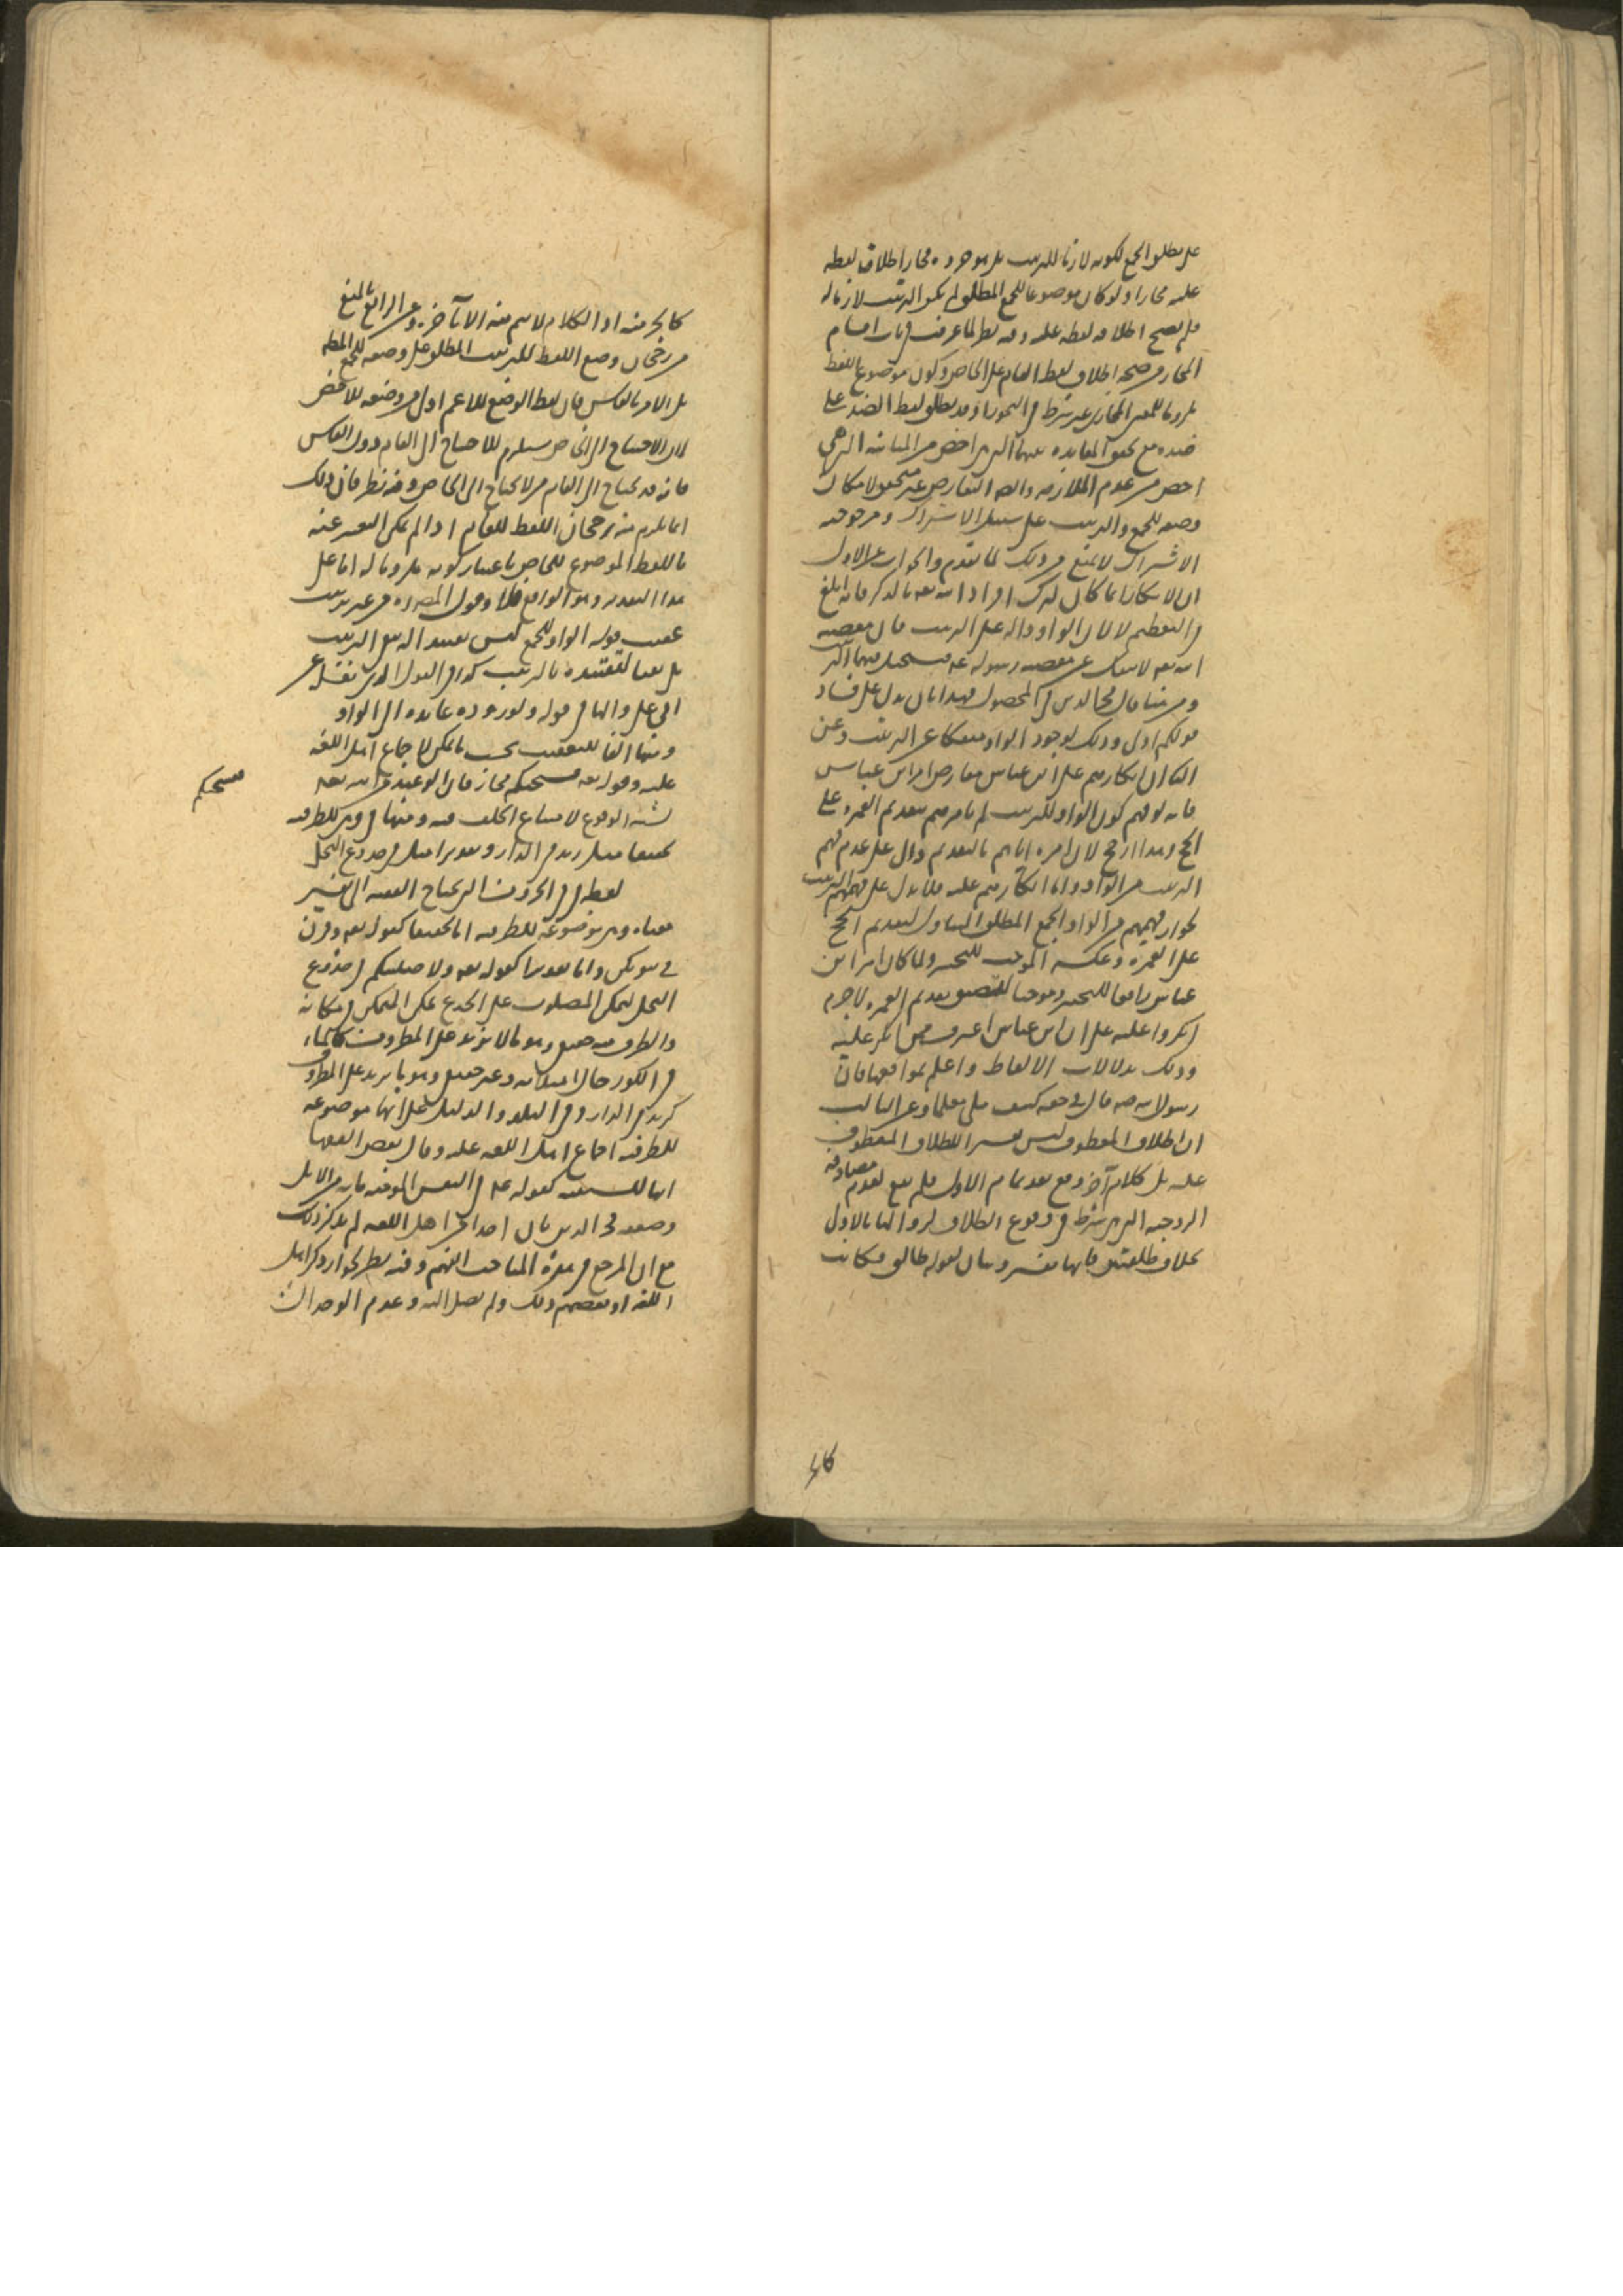 على مطلق الجمع لكونه لازما للترتيب بل هو جزوه مجاز اطلاق لفظه
عليه مجازا ولو كان موضوعا للجمع المطلق لم يكن الترتيب لازما له
فلم يصح اطلاق لفظه عليه وفيه نظر لما عرفت في باب اقسام
المجاز من صحة اطلاق لفظ العام على الخاص وكون موضوع اللفظ
ملزوما للمعنى المجازى غير شرط في التجوز اذ قد يطلق لفظ الضد على
ضده مع تحقق المعانده بينهما التي هي اخص من المباينة التي هي
اخص من عدم الملازمه وايضا التعارض غير متحقق لامكان
وضعه للجمع والترتيب على سبيل الاشتراك ومرجوحيه
الاشتراك لا تمنع من ذلك لما تقدم والجواب عن الاول
ان الانكار انما كان لترك افراد الله تعه بالذكر فانه ابلغ
في التعظيم لا لان الواو دالة على الترتيب فان معصيه
الله تعه لا تنفك عن معصيه رسوله عه فيستحيل فيهما
ومن هنا قال فخر الدين في المحصول فهذا بان يدل على فساد
قولكم اولى وذلك لوجود الواو منفكا عن الترتيب وعن
الثانى ان انكارهم على ابن عباس معارض بامر ابن عباس
فانه لو فهم كون الواو للترتيب لم يامرهم بتقديم العمره على
الحج وهذا ارجح لان امره اياهم بالتقديم دال على عدم فهم
الترتيب من الواو واما انكارهم عليه فلا يدل على فهمهم الترتيب
لجواز فهمهم من الواو الجمع المطلق المتناول لتقديم الحج
على العمره وعكسه الموجب للتخيير ولما كان امر ابن
عباس رافعا للتخيير وموجبا للتضييق بتقديم العمره لا جرم
انكروا عليه على ان ابن عباس اعرف ممن انكر عليه
وذلك بدلالات الالفاظ واعلم بمواقعها فان
رسول الله صه قال في حقه كنيف ملى علما وعن الثالث
ان الطلاق المعطوف ليس تفسيرا للطلاق المعطوف
عليه بل كلام آخر وقع بعد تمام الاول فلم يقع لعدم مصادفه
الزوجيه التي هي شرط في وقوع الطلاق لزوالها بالاول
بخلاف طلقتين فانها تفسير وبيان لقوله طالق فكانت
كالجز
كالجز منه اذ الكلام لا يتم منه الا بآخره وعن الرابع بالمنع
من رجحان وضع اللفظ للترتيب المطلق على وضعه للجمع المطلق
بل الامر بالعكس فان لفظ الوضع للاعم اولى من وضعه للاخص
لان الاحتياج الى الخاص يستلزم الاحتياج الى العام دون العكس
فانه قد يحتاج الى العام من لا يحتاج الى الخاص وفيه نظر فان ذلك
انما يلزم منه رجحان اللفظ للعام اذا لم يمكن التعبير عنه
باللفظ الموضوع للخاص باعتبار كونه ملزوما له اما على
هذا التقدير وهو الواقع فلا وقول المصنف من غير ترتيب
عقيب قوله الواو للجمع ليس تقييدا له بنفى الترتيب
بل نفيا لتقييده بالترتيب
ومنها الفا للتعقيب بحسب ما يمكن لاجماع اهل اللغه
عليه وقوله تعه فيسحتكم مجاز فان الوعيد من الله تعه
فيسحتكم
لامتناع الخلف فيه ومنها في وهى للظرفيه
تحقيقا مثل زيد في الدار وتقديرا مثل في جذوع النخل
لفظه في من الحروف التي يحتاج الفقيه الى تفسير
معناه وهى موضوعة للظرفيه اما تحقيقا كقوله تعه وقرن
في بيوتكن واما تقديرا كقوله تعه ولاصلبنكم في جذوع
النخل لتمكن المصلوب على الجذع تمكن المتمكن في مكانه
والظرف منه حقيقى وهو مالا يزيد على المظروف كالماء
في الكوز حال امتلائه وغير حقيقى وهو ما يزيد على المظروف
كزيد في الدار وفي البلد والدليل على انها موضوعه
للظرفيه اجماع اهل اللغه عليه وقال بعض الفقها
انها للسببيه كقوله عه في النفس المومنه مايه من الابل
وضعفه فخر الدين بان احدا من اهل اللغه لم يذكر ذلك
مع ان المرجع في هذه المباحث اليهم وفيه نظر لجواز ذكر اهل
اللغه او بعضهم ذلك ولم يصل اليه وعدم الوجدان